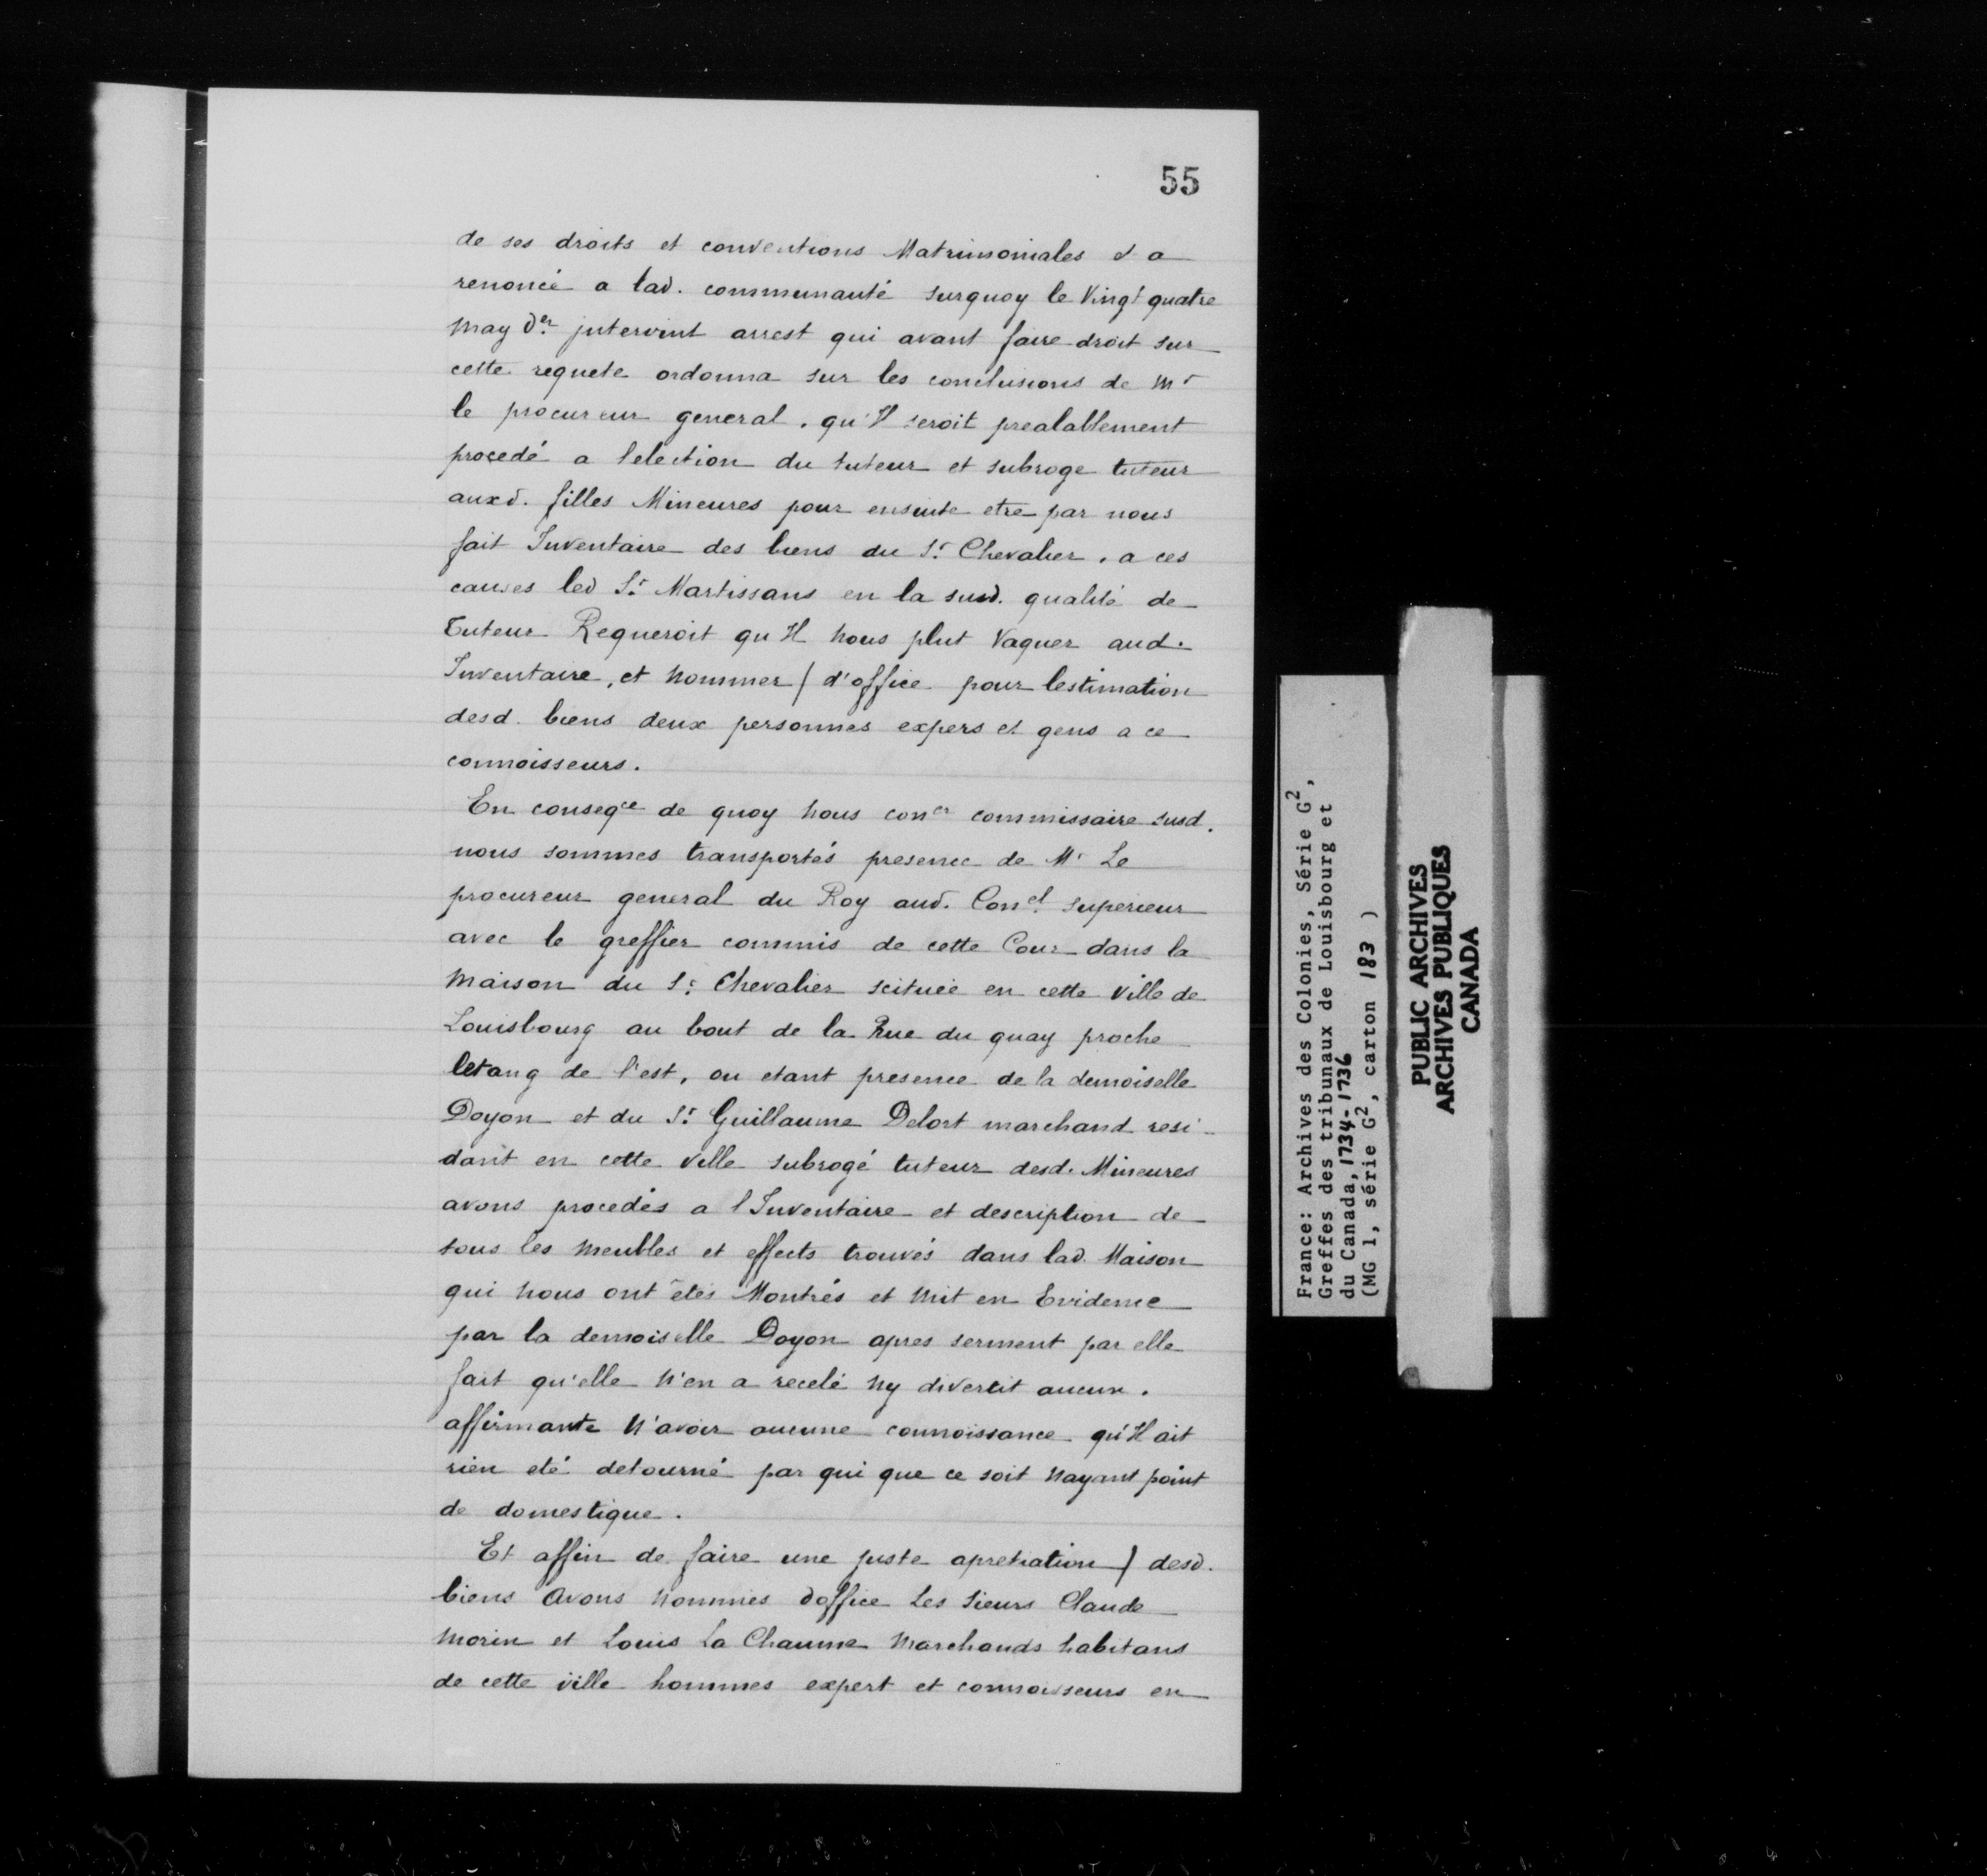 55
de ses droits et conventions Matrimoniales et a
renoncé a lad. communauté surquoy le Vingt quatre
May der jntervint arrest qui avant faire droit sur
cette requete ordonna sur les conclusions de Mr
le procureur general, qu'Il seroit prealablement
procedé a lelection du tuteur et subroge tuteur
auxd. filles Mineures pour ensuite etre par nous
fait Inventaire des biens du Sr Chevalier, a ces
causes led Sr Martissans en la susd. qualité de
Tuteur Requeroit qu'Il Nous plut Vaquer aud.
Inventaire, et Nommer / d'office pour lestimation
desd. biens deux personnes expers et gens a ce
connoisseurs.
En conseqce de quoy Nous coner commissaire susd.
nous sommes transportés presence de Mr Le
procureur general du Roy aud. Conel superieur
avec le greffier commis de cette Cour dans la
Maison du Sr Chevalier scituée en cette Ville de
Louisbourg au bout de la Rue du quay proche
letang de l'est, ou etant presence de la demoiselle
Doyon et du Sr Guillaume Delort marchand resi-
dant en cette Ville subrogé tuteur desd. Mineures
avons procedés a l'Inventaire et description de
tous les Meubles et effects trouvés dans lad. Maison
qui Nous ont étés Montrés et Mit en Evidence
par la demoiselle Doyon apres serment par elle
fait qu'elle N'en a recelé Ny divertit aucun.
affirmante N'avoir aucune connoissance qu'Il ait
rien eté detourné par qui que ce soit Nayant point
de domestique.
Et affin de faire une juste apretiation / desd.
biens avons Nommés doffice Les Sieurs Claude
Morin et Louis La Chaume Marchands habitans
de cette ville hommes expert et connoisseurs en
France: Archives des Colonies, Série G2,
Greffes des tribunaux de Louisbourg et
du Canada, 1734-1736
(MG 1, série G2, carton 183 )
PUBLIC ARCHIVES
ARCHIVES PUBLIQUES
CANADA